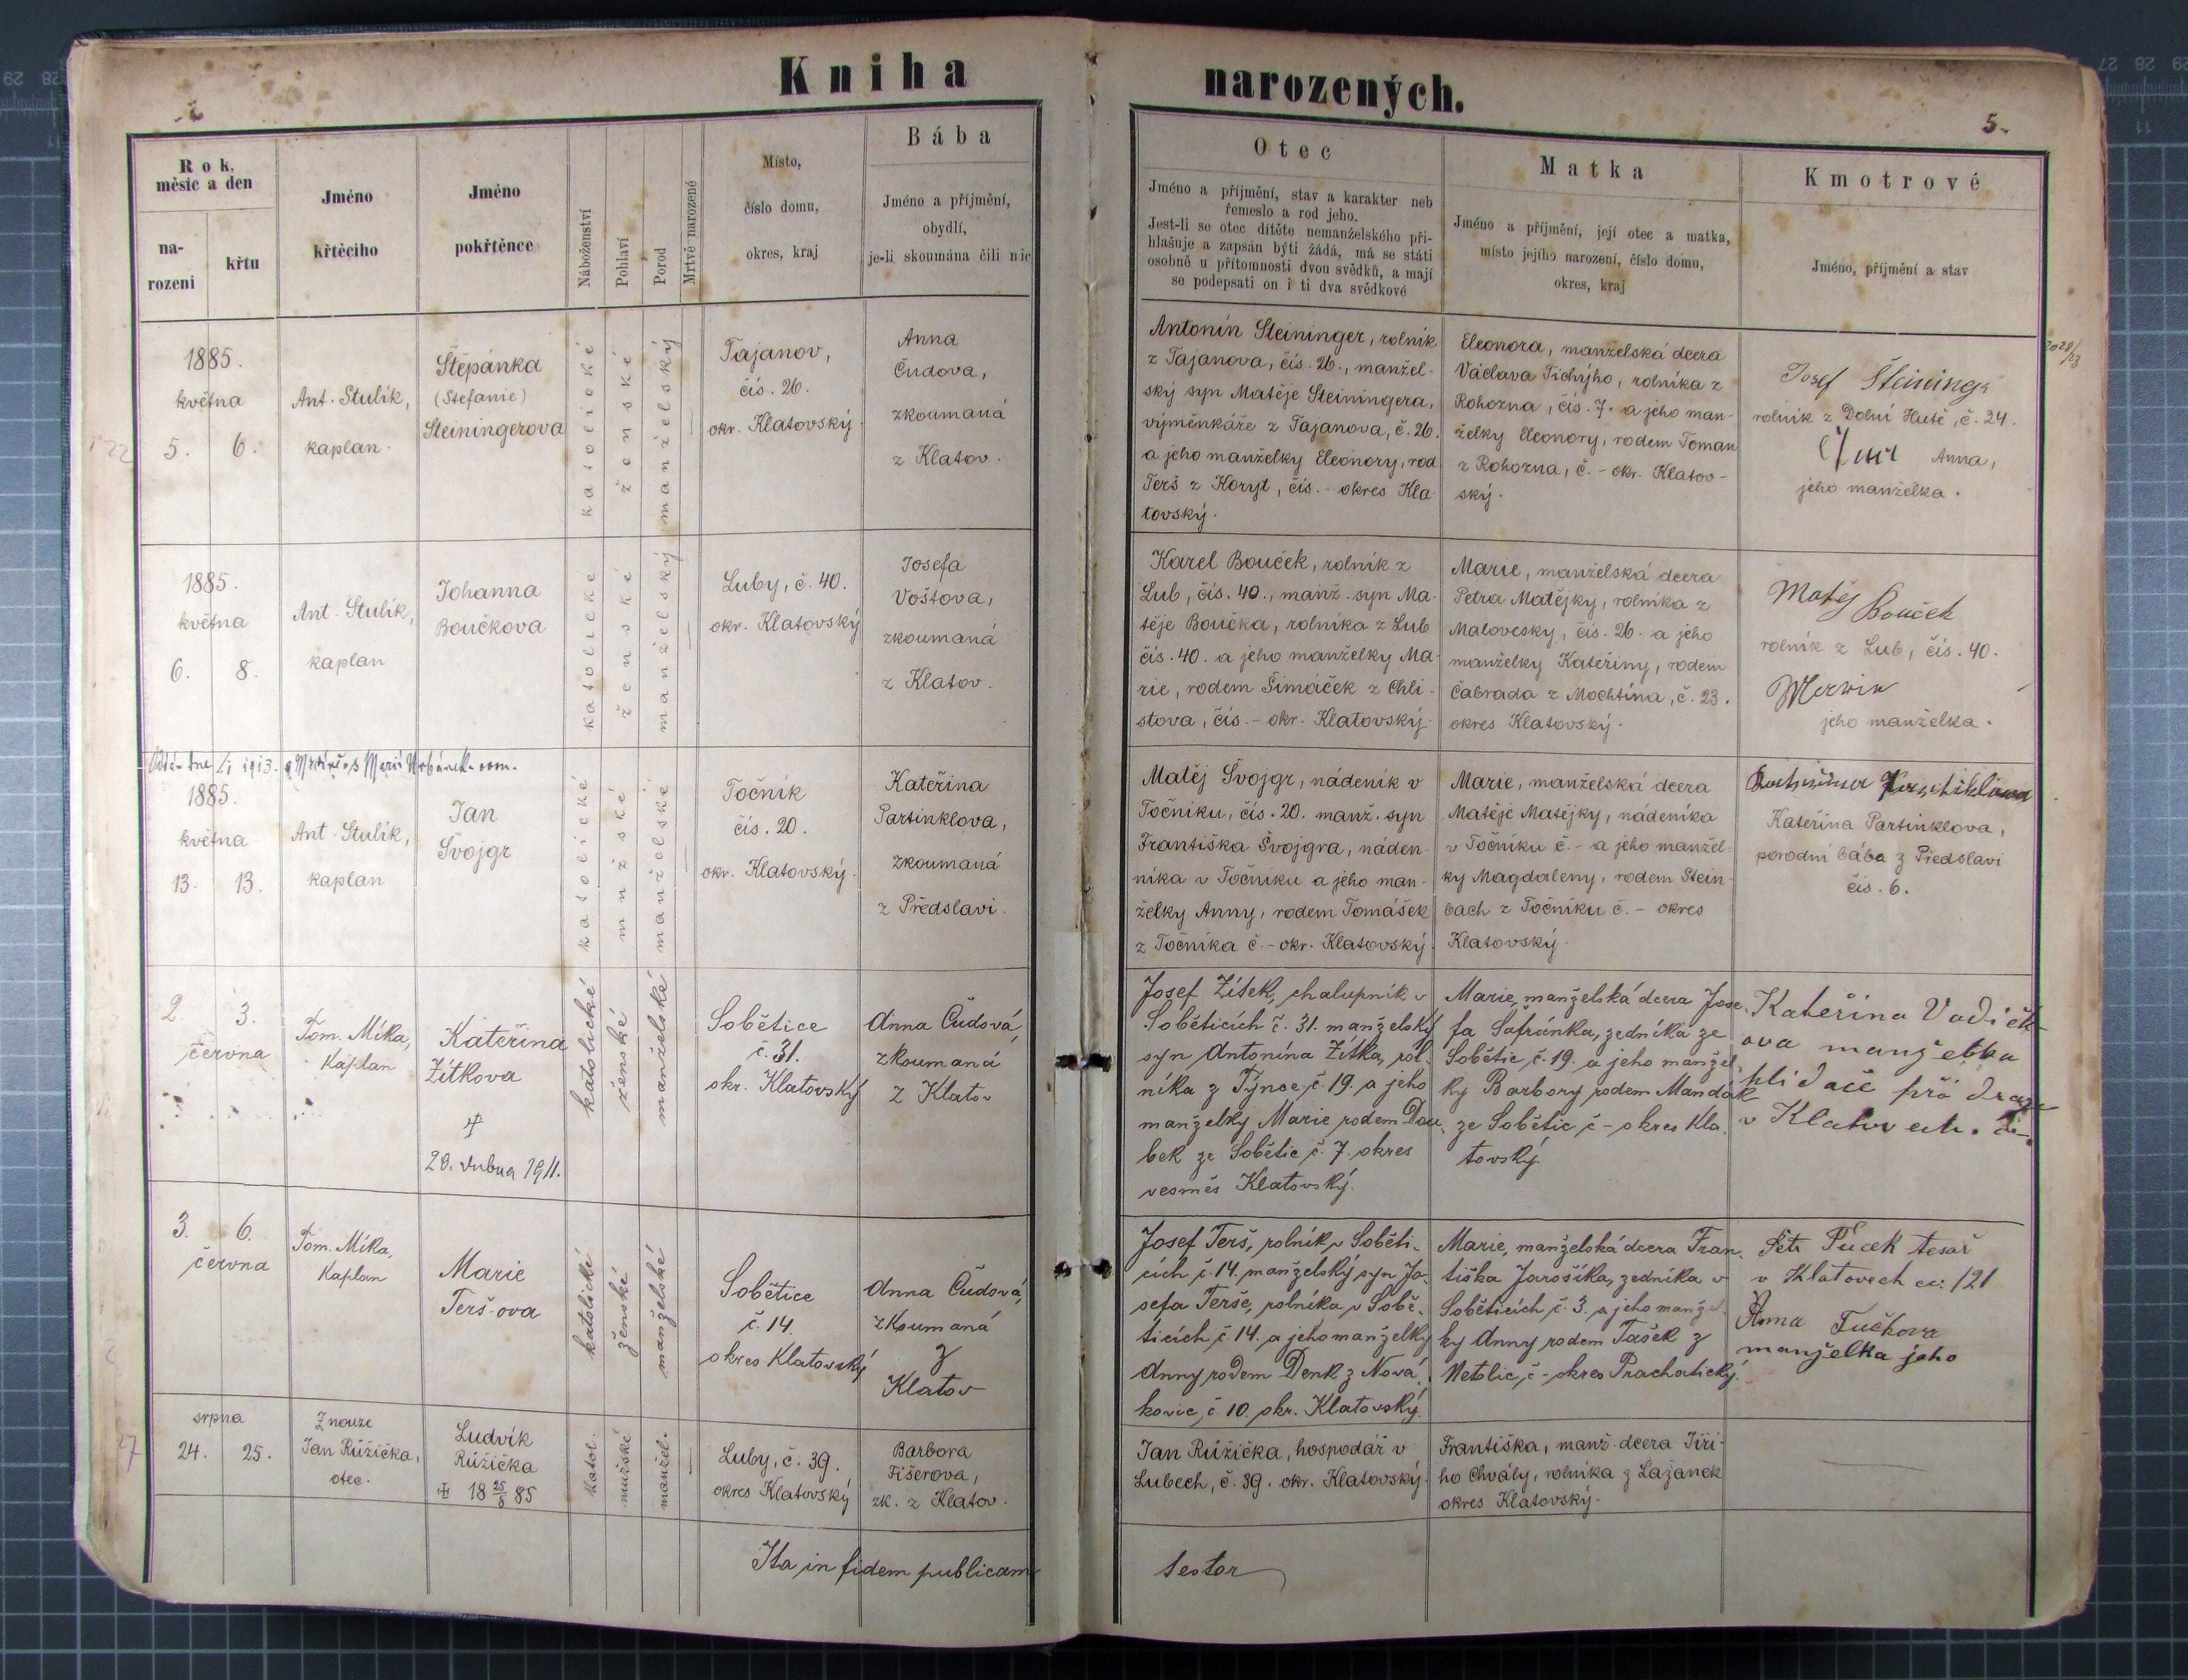 Kniha narozených.
5.
Rok, měsíc a den
na-
rození
křtu
Jméno
křtěcího
Jméno
pokřtěnce
Náboženství
Pohlaví
Porod
Mrtvě narozené
Místo,
číslo domu,
okres, kraj
Bába
Jméno a příjmění,
obydlí,
je-li skoumána čili nic
Otec
Jméno a příjmění, stav a karakter neb
řemeslo a rod jeho.
Jest-li se otec dítěte nemanželského při-
hlašuje a zapsán býti žádá, má se státi
osobně u přítomnosti dvou svědků, a mají
se podepsati on i ti dva svědkové
Matka
Jméno a příjmění, její otec a matka,
místo jejího narození, číslo domu,
okres, kraj
Kmotrové
Jméno, příjmění a stav
1885.
května
5. 6.
Ant. Stulík,
kaplan.
Štěpánka
(Stefanie)
Steiningerova
katolické
ženské
manželský
Tajanov,
čís. 26.
okr. Klatovský
Anna
Čudova,
zkoumaná
z Klatov.
Antonín Steininger, rolník
z Tajanova, čís. 26., manžel-
ský syn Matěje Steiningera,
výměnkáře z Tajanova, č. 26.
a jeho manželky Eleonory, rod
Terš z Koryt, čís. - okres Kla-
tovský.
Eleonora, manželská dcera
Václava Tichýho, rolníka z
Rohozna, čís. 7. a jeho man-
želky Eleonory, rodem Toman
z Rohozna, č. - okr. Klatov-
ský.
Josef
rolník z Dolní Hutě, č. 24.
Anna,
jeho manželka.
1885.
května
6. 8.
Ant. Stulík,
kaplan
Johanna
Boučkova
katolické
ženské
manželský
Luby, č. 40.
okr. Klatovský
Josefa
Voštova,
zkoumaná
z Klatov.
Karel Bouček, rolník z
Lub, čís. 40., manž. syn Ma-
těje Boučka, rolníka z Lub
čís. 40. a jeho manželky Ma-
rie, rodem Šimáček z Chli-
stova, čís. - okr. Klatovský.
Marie, manželská dcera
Petra Matějky, rolníka z
Malovesky, čís. 26. a jeho
manželky Kateřiny, rodem
Čabrada z Mochtína, č. 23.
okres Klatovský.
Matěj Bouček
rolník z Lub, čís. 40.
jeho manželka.
1885.
května
13. 13.
Ant. Stulík,
kaplan
Jan
Švojgr
katolické
mužské
manželské
Točník
čís. 20.
okr. Klatovský.
Kateřina
Partinklova,
zkoumaná
z Předslavi.
Matěj Švojgr, nádeník v
Točníku, čís. 20. manž. syn
Františka Švojgra, náden-
níka v Točníku a jeho man-
želky Anny, rodem Tomášek
z Točníka č. - okr. Klatovský.
Marie, manželská dcera
Matěje Matějky, nádeníka
v Točníku č. - a jeho manžel-
ky Magdaleny, rodem Stein-
bach z Točníku č. - okres
Klatovský.
Kateřina Partinklova,
porodní bába z Předslavi
čís. 6.
2. 3.
června
Tom. Míka,
Kaplan
Kateřina
Žítkova
20. dubna 1911.
katolické
ženské
manželské
Sobětice
č. 31.
okr. Klatovský
Anna Čudová,
zkoumaná
z Klatov
Josef Žítek, chalupník v
Soběticích č. 31. manželský
syn Antonína Žítka, rol-
níka z Týnce, č. 19. a jeho
manželky Marie rodem Dou-
bek ze Sobětic č. 7. okres
vesměs Klatovský.
Marie, manželská dcera Jose-
fa Šafránka, zedníka ze
Sobětic, č. 19. a jeho manžel-
ky Barbory rodem Mandák
ze Sobětic č - okres Kla-
tovský.
Kateřina Vodičk
ova manželka
hlidače při draze
v Klatovech.
3. 6.
června
Tom. Míka,
Kaplan
Marie
Teršova
katolické
ženské
manželské
Sobětice
č. 14.
okres Klatovský
Anna Čudová,
zkoumaná
z
Klatov
Josef Terš, rolník v Soběti-
cích č. 14. manželský syn Jo-
sefa Terše, rolníka v Sobě-
ticích č. 14. a jeho manželky
Anny rodem Denk z Nová-
kovic, č. 10. okr. Klatovský.
Marie, manželská dcera Fran-
tiška Jarošíka, zedníka v
Soběticích č. 3. a jeho manžel-
ky Anny rodem Tašek z
Netolic, č - okres Prachatický.
Petr Tucek tesař
v Klatovech 121
Anna Tučkova
manželka jeho
srpna
24. 25.
Z nouze
Jan Růžička,
otec.
Ludvík
Růžička
‡ 18 25/8 85
katol.
mužské
manžel.
Luby, č. 39.
okres Klatovský
Barbora
Fišerova,
zk. z Klatov.
Jan Růžička, hospodář v
Lubech, č. 39. okr. Klatovský.
Františka, manž. dcera Jiří-
ho Chvály, rolníka z Lažánek
okres Klatovský.
Ita in fidem publicam
testor